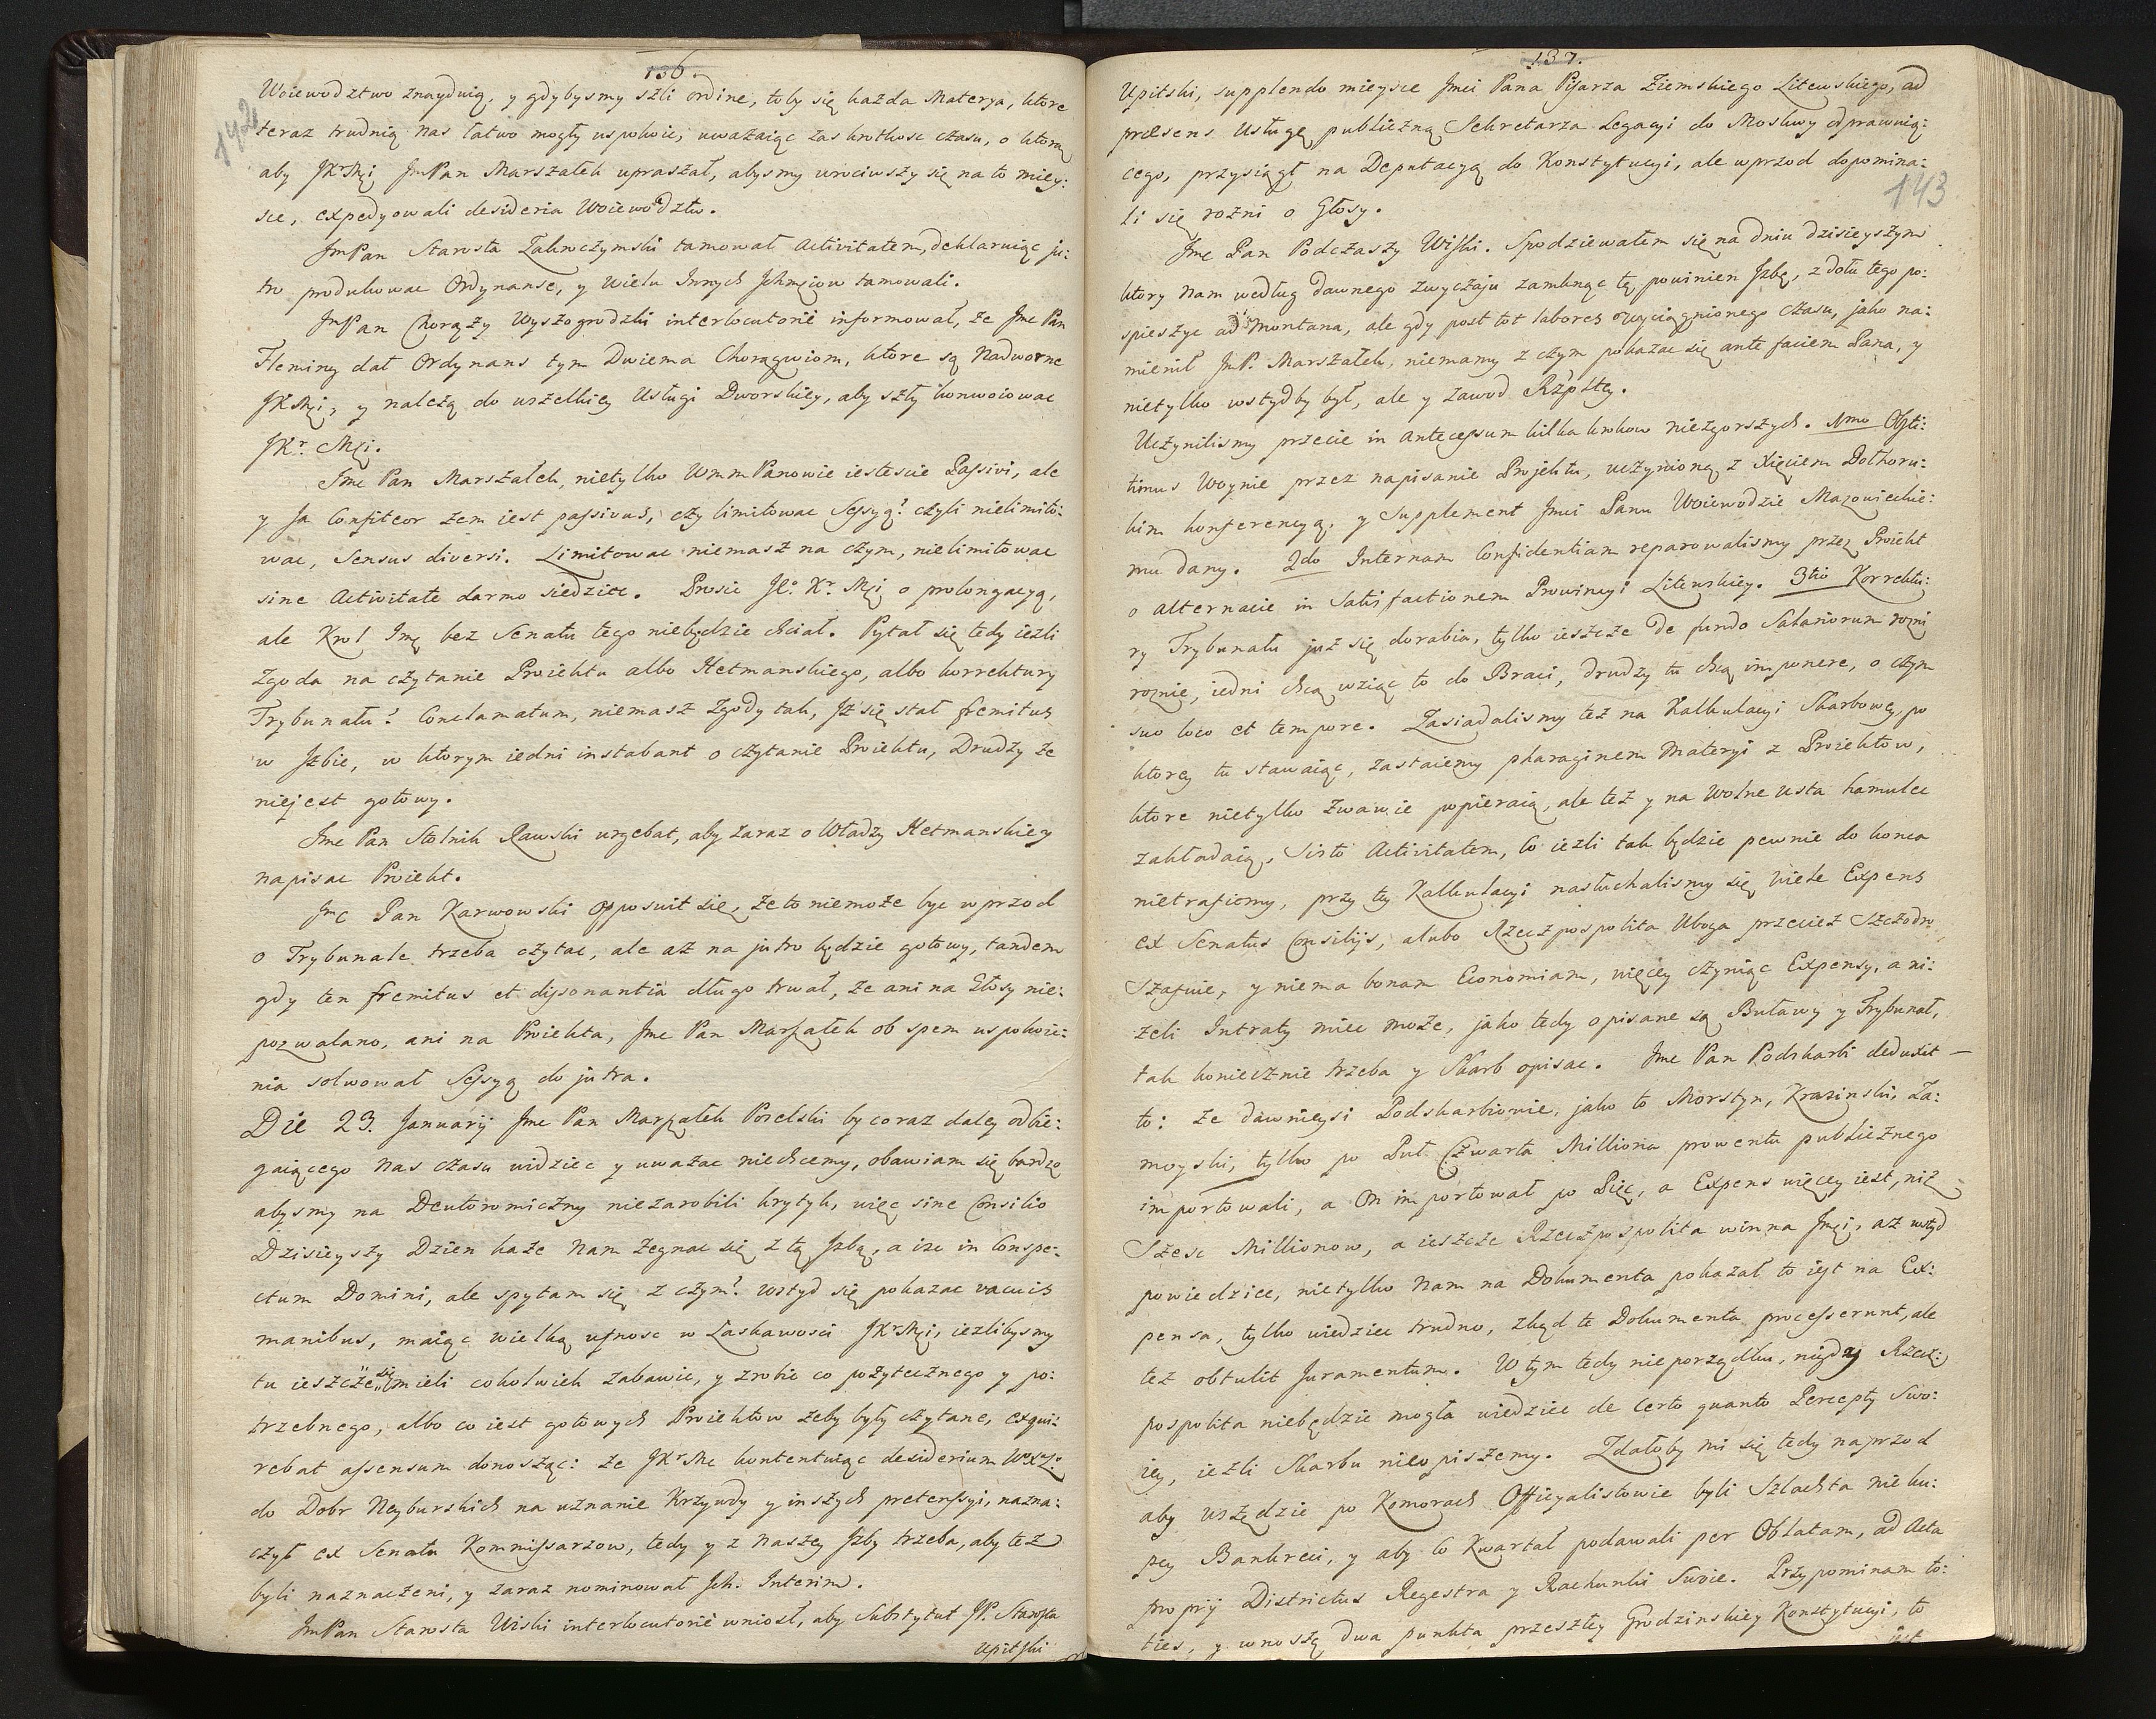 136.
142
Woiewodztwo znayduią, y gdybysmy szli ordine, toby się kazda Materya, ktore
teraz trudnią nas łatwo mogły uspokoic, uwazaiąc zas krotkosc czasu, o ktorą
aby JKrMci JmPan Marszałek upraszał, abysmy wrociwszy się na to miey:
sce, expedyowali desideria Woiewodztw.
JmPan Starosta Zakroczymski tamował Activitatem, deklaruiąc ju:
tro produkowac Ordynanse, y wielu Innych Ichmciow tamowali.
JmPan Chorąży Wyszogrodzki interlocutorie informował, że Jmc Pan
Fleming dał Ordynans tym Dwiema Chorągwiom, ktore są Nadworne
JKMci, y nalezą do wszelkiey Usługi Dworskiey, aby szły konwoiowac
JKr. Mci.
Jmc Pan Marszałek, nietylko WmmPanowie iestescie Passivi, ale
y Ja Confiteor żem iest passivus, czy limitowac Sessyą? czyli nielimito:
wac, Sensus diversi. Limitowac niemasz na czym, nielimitowac
sine Activitate darmo siedziec. Prosic Jo. Kr. Mci o prolongacyą,
ale Krol Jmc bez Senatu tego niebędzie chciał. Pytał się tedy iezli
Zgoda na czytanie Proiektu albo Hetmanskiego, albo korrektury
Trybunału? Conclamatum, niemasz Zgody tak, Iz się stał fremitus
w Izbie, w ktorym iedni instabant o czytanie Proiektu, Drudzy ze
niejest gotowy.
Jmc Pan Stolnik Rawski urgebat, aby zaraz o Władzy Hetmanskiey
napisac Proiekt.
Jmc Pan Karwowski opposuit się, że to niemoże byc wprzod
o Trybunale trzeba czytac, ale az na jutro będzie gotowy, tandem
gdy ten fremitus et dissonantia długo trwał, że ani na Głosy nie:
pozwalano, ani na Proiekta, Jmc Pan Marszałek ob spem uspokoie:
nia solwował Sessyą do jutra.
Die 23. Januarij Jmc Pan Marszałek Poselski by coraz daley odbie:
gaiącego nas czasu widziec y uwazac niechcemy, obawiam się bardzo
abysmy na Deutoromiczny niezarobili krytyk, więc sine Consilio
Dzisieyszy Dzien kaze nam żegnac się z tą Izbą, a isc in Conspe:
ctum Domini, ale spytam się z czym? wstyd się pokazac vacuis
manibus, maiąc wielką ufnosc w Łaskawosci JKrMci, iezlibysmy
tu ieszcze się mieli cokolwiek zabawic, y zrobic co pozytecznego y po:
trzebnego, albo co iest gotowych Proiektow zeby były czytane, exqui:
rebat assensum donosząc: że JKrMc kontentuiąc desiderium WXL:
do Dobr Neyburskich na uznanie Krzywdy y inszych pretensyi, nazna:
czył ex Senatu Kommissarzow, tedy y z naszey Izby trzeba, aby też
byli naznaczeni, y zaraz nominował Ich. Interim.
JmPan Starosta Wiski interlocutorie wniosł, aby Substytut JP. Starosta
Upitski
137.
143
Upitski, supplendo mieysce Jmci Pana Pisarza Ziemskiego Litewskiego, ad
præsens Usługę publiczną Sekretarza Legacyi do Moskwy odprawuią:
cego, przysiągł na Deputacyą do Konstytucyi, ale wprzod dopomina:
li się rozni o Głosy.
Jmc Pan Podczaszy Wiski. Spodziewałem się na dniu dzisieyszym
ktory Nam według dawnego zwyczaju zamknąc tę powinien Izbę, z dołu tego po:
spieszyc ad Montana, ale gdy post tot labores wyciągnionego czasu, jako na:
mienił JmP. Marszałek, niemamy z czym pokazac się ante faciem Pana, y
nietylko wstyd by był, ale y zawod Rzpltey.
Uczynilismy przecie in antecessum kilka krokow niezgorszych. 1mo Obsti:
timus Woynie przez napisanie Projektu, uczynioną z Xięciem Dołhoru:
kim konferencyą, y Supplement Jmci Panu Woiewodzie Mazowieckie:
mu dany. 2do Internam Confidentiam reparowalismy przez Proiekt
o alternacie in Satisfactionem Prowincyi Litewskiey. 3tio Korrektu:
ry Trybunału już się dorabia, tylko ieszcze de fundo Salariorum rozni
roznie, iedni chcą wziąc to do Braci, drudzy tu chcą imponere, o czym
suo loco et tempore. Zasiadalismy też na Kalkulacyi Skarbowey, po
ktorey tu stawaiąc, zastaiemy pharaginem Materyi z Proiektow,
ktore nietylko zwawie popieraią, ale też y na wolne usta hamulce
zakładaią, Sisto Activitatem, co iezli tak będzie pewnie do konca
nietrafiemy, przy tey Kalkulacyi nasłuchalismy się wiele Expens
ex Senatus Consilijs, alubo Rzeczpospolita Uboga przeciez Szczodro
Szafuie, y niema bonam Economiam, więcey czyniąc Expensy, ani:
żeli Intraty miec może, jako tedy opisane są Buławy y Trybunał,
tak koniecznie trzeba y Skarb opisac. Jmc Pan Podskarbi deduxit —
to: że dawnieysi Podskarbiowie, jako to Morstyn, Krasinski, Za:
moyski, tylko po Puł Czwarta Milliona prowentu publicznego
importowali, a On importował po Pięc, a Expens więcey iest, niż
Szesc Millionow, a ieszcze Rzeczpospolita winna Jmci, aż wstyd
powiedziec, nietylko Nam na Dokumenta pokazał to iest na Ex:
pensa, tylko wiedziec trudno, zkąd te Dokumenta processerunt, ale
też obtulit Juramentum. W tym tedy nieporządku, nigdzy Rzecz:
pospolita niebędzie mogła wiedziec de certo quanto Percepty Swo:
iey, iezli Skarbu nieopiszemy. Zdałoby mi się tedy naprzod
aby wszędzie po Komorach Officyalistowie byli Szlachta nie ku:
pcy Bankreci, y aby co Kwartał podawali per Oblatam, ad Acta
proprij Districtus Regestra y Rachunki Swoie. Przypominam to:
ties, y wnoszę dwa punkta przeszłey Grodzinskiey Konstytucyi, to
iest